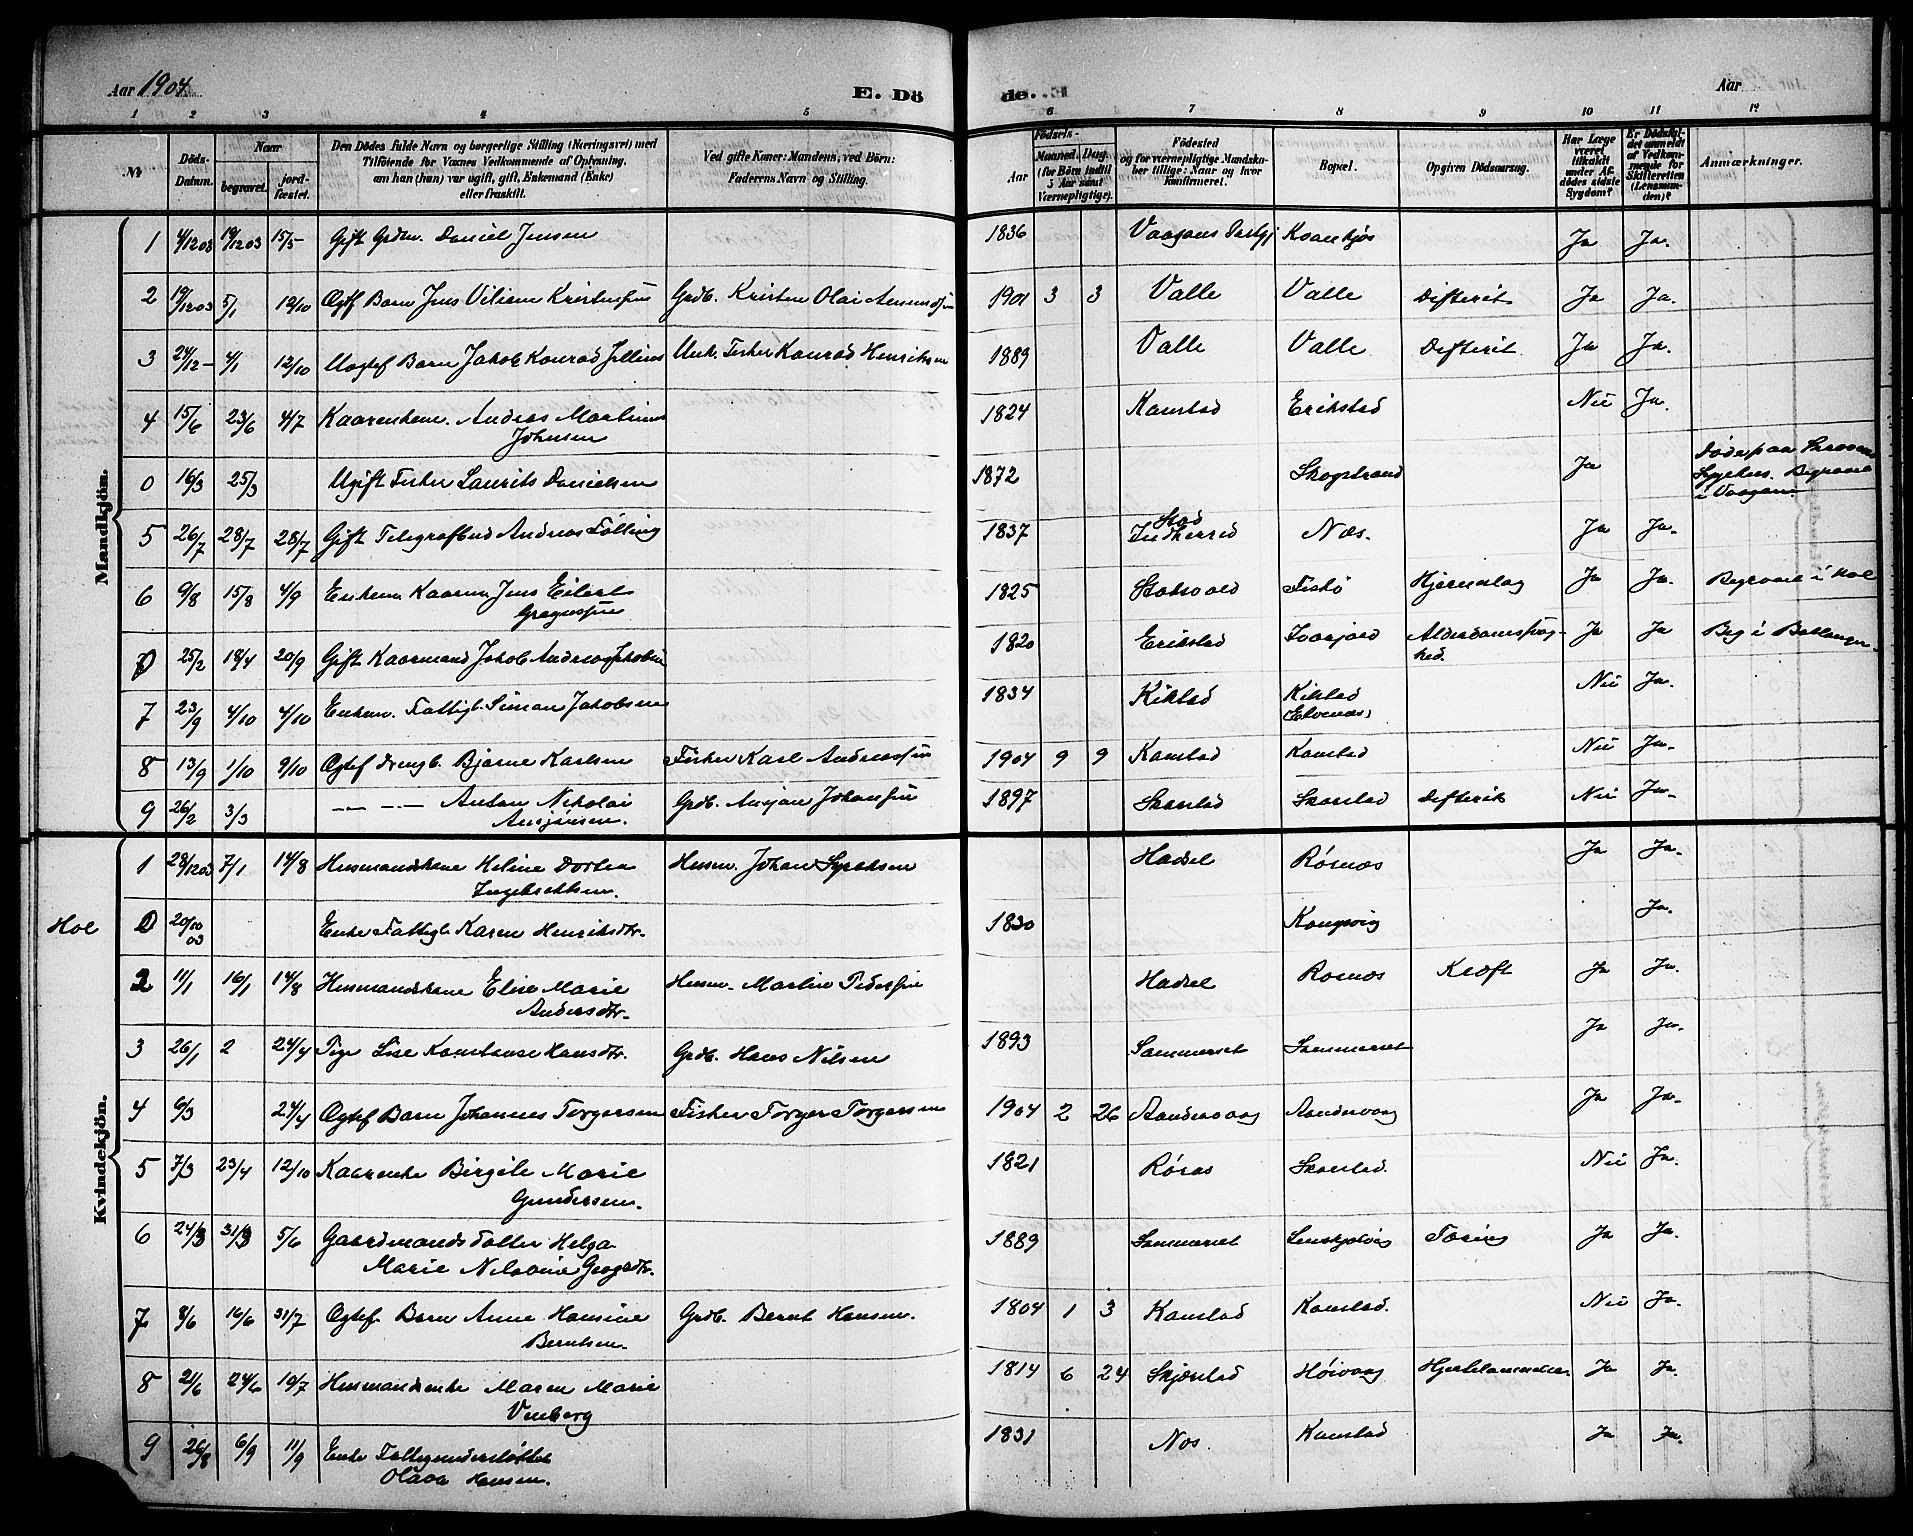 Aar 1904.
E. Dö
de.
Aar
1 2 3 4 5 6 7 8 9 10 11 12
№
Döds-Datum.
Naar
begravet.
jord-fæstet.
Den Dödes fulde Navn og borgerlige Stilling (Næringsvei) med
Tilföiende for Voxnes Vedkommende af Oplysning,
om han (hun) var ugift, gift, Enkemand (Enke)
eller fraskilt.
Ved gifte Koner: Mandens, ved Börn:
Faderens Navn og Stilling.
Födsels-
Aar
Maaned. Dag.
(for Börn indtil
5 Aar samt
Værnepligtige).
Födested
og for værnepligtige Mandska-
ber tillige: Naar og hvor
konfirmeret.
Bopæl.
Opgiven Dödsaarsag.
Har Læge
været
tilkaldt
under Af-
dödes sidste
Sygdom?
Er Dödsfal-
det anmeldt
af Vedkom-
mende for
Skifteretten
(Lensman-
den)?
Anmærkninger.
Mandkjön.
1 4/12 03 19/12 03 15/5 Gift Grdm. Daniel Jensen 1836 Vaagans Kvankjøs Ja Ja.
2 19/12 03 5/1 12/10 Ægtf Barn Jens Viliem Kristensen Grdb. Kristen Olai 1901 3 3 Valle Valle Difterit Ja Ja.
3 24/12 - 4/1 12/10 Uægtef Barn Jakob Konrad Unk. Fisker Konrad Henriksen 1889 Valle Valle Difterit. Ja Ja.
4 15/6 23/6 4/7 Kaarenkem. Andreas Martinus
Johnsen 1824 Kanstad Erikstad Nei Ja.
0 16/3 25/3 Ugift Fisker Laurits Danielsen 1872 Skogstrand Ja Døde paa
Sygehus. Begravet
i Vaagan.
5 26/7 28/7 28/7 Gift Telegrafbud Andreas Følling 1837 Stod
Indherred Næs. Ja Ja.
6 9/8 15/8 4/9 Enkem. Kaarm. Jens Eilert
Gregussen 1825 Fiskø Hjerneslag Ja Ja. Begravet i Hol
0 25/2 18/4 20/9 Gift Kaarmand Jakob Andreas Jakobsen 1820 Erikstad Ivarjord Alderdomssvag-
hed. Ja Ja Beg i Ballangen.
7 23/9 4/10 4/10 Enkem. Fattigl. Simon Jakobsen 1834 Kilstad Kilstad
(Elvenæs) Nei Ja.
8 13/9 1/10 9/10 Ægtef drengb. Bjarne Karlsen Fisker Karl Andreassen 1904 9 9 Kanstad Kanstad Nei Ja.
9 26/2 3/3 — — — Anton Nikolai
Ansjønsen. Grdb. Ansjøn Johansen 1897 Skarstad Skarstad Difterit Nei Ja.
Kvindekjön.
1 28/12 03 7/1 14/8 Husmandskone Heline Dortea
Ingebrektsen. Husm. Johan Syraksen Hadsel Rørnæs Ja Ja.
Hol 0 20/10 03 Enke Fattigl. Karen Henriksdtr. 1830 Kongsvig Ja.
2 11/1 16/1 14/8 Husmandskone Elise Marie
Andersdtr. Husm. Martin Pedersen Hadsel Rørnæs Kræft Ja Ja.
3 26/1 2 24/4 Pige Lise Konstanse Hansdtr. Grdb. Hans Nilsen 1893 Sommerset Sommerset Ja Ja.
4 6/3 24/4 Ægtef Barn Johannes Torgersen Fisker Torger Torgersen 1904 2 26 Aandervaag Aandervaag Ja Ja.
5 7/3 23/4 12/10 Kaarenke Birgite Marie
Gundersen. 1821 Røros Skarstad. Nei Ja.
6 24/3 31/3 5/6 Gaardmands Datter Helga
Marie Nilovine 1889 Sommerset Tæring Ja Ja.
7 8/6 16/6 31/7 Ægtef. Barn Anne Hansine
Berntsen. Grdb. Bernt Hansen. 1804 1 3 Kanstad Kanstad. Nei Ja.
8 21/6 24/6 10/7 Husmandsenke Maren Marie
Venberg 1814 6 24 Skjerstad Høivaag Ja Ja.
9 26/8 6/9 11/9 Enke Fattigunderstøttet
Olava Hansen. 1831 Næs. Kanstad Ja Ja.